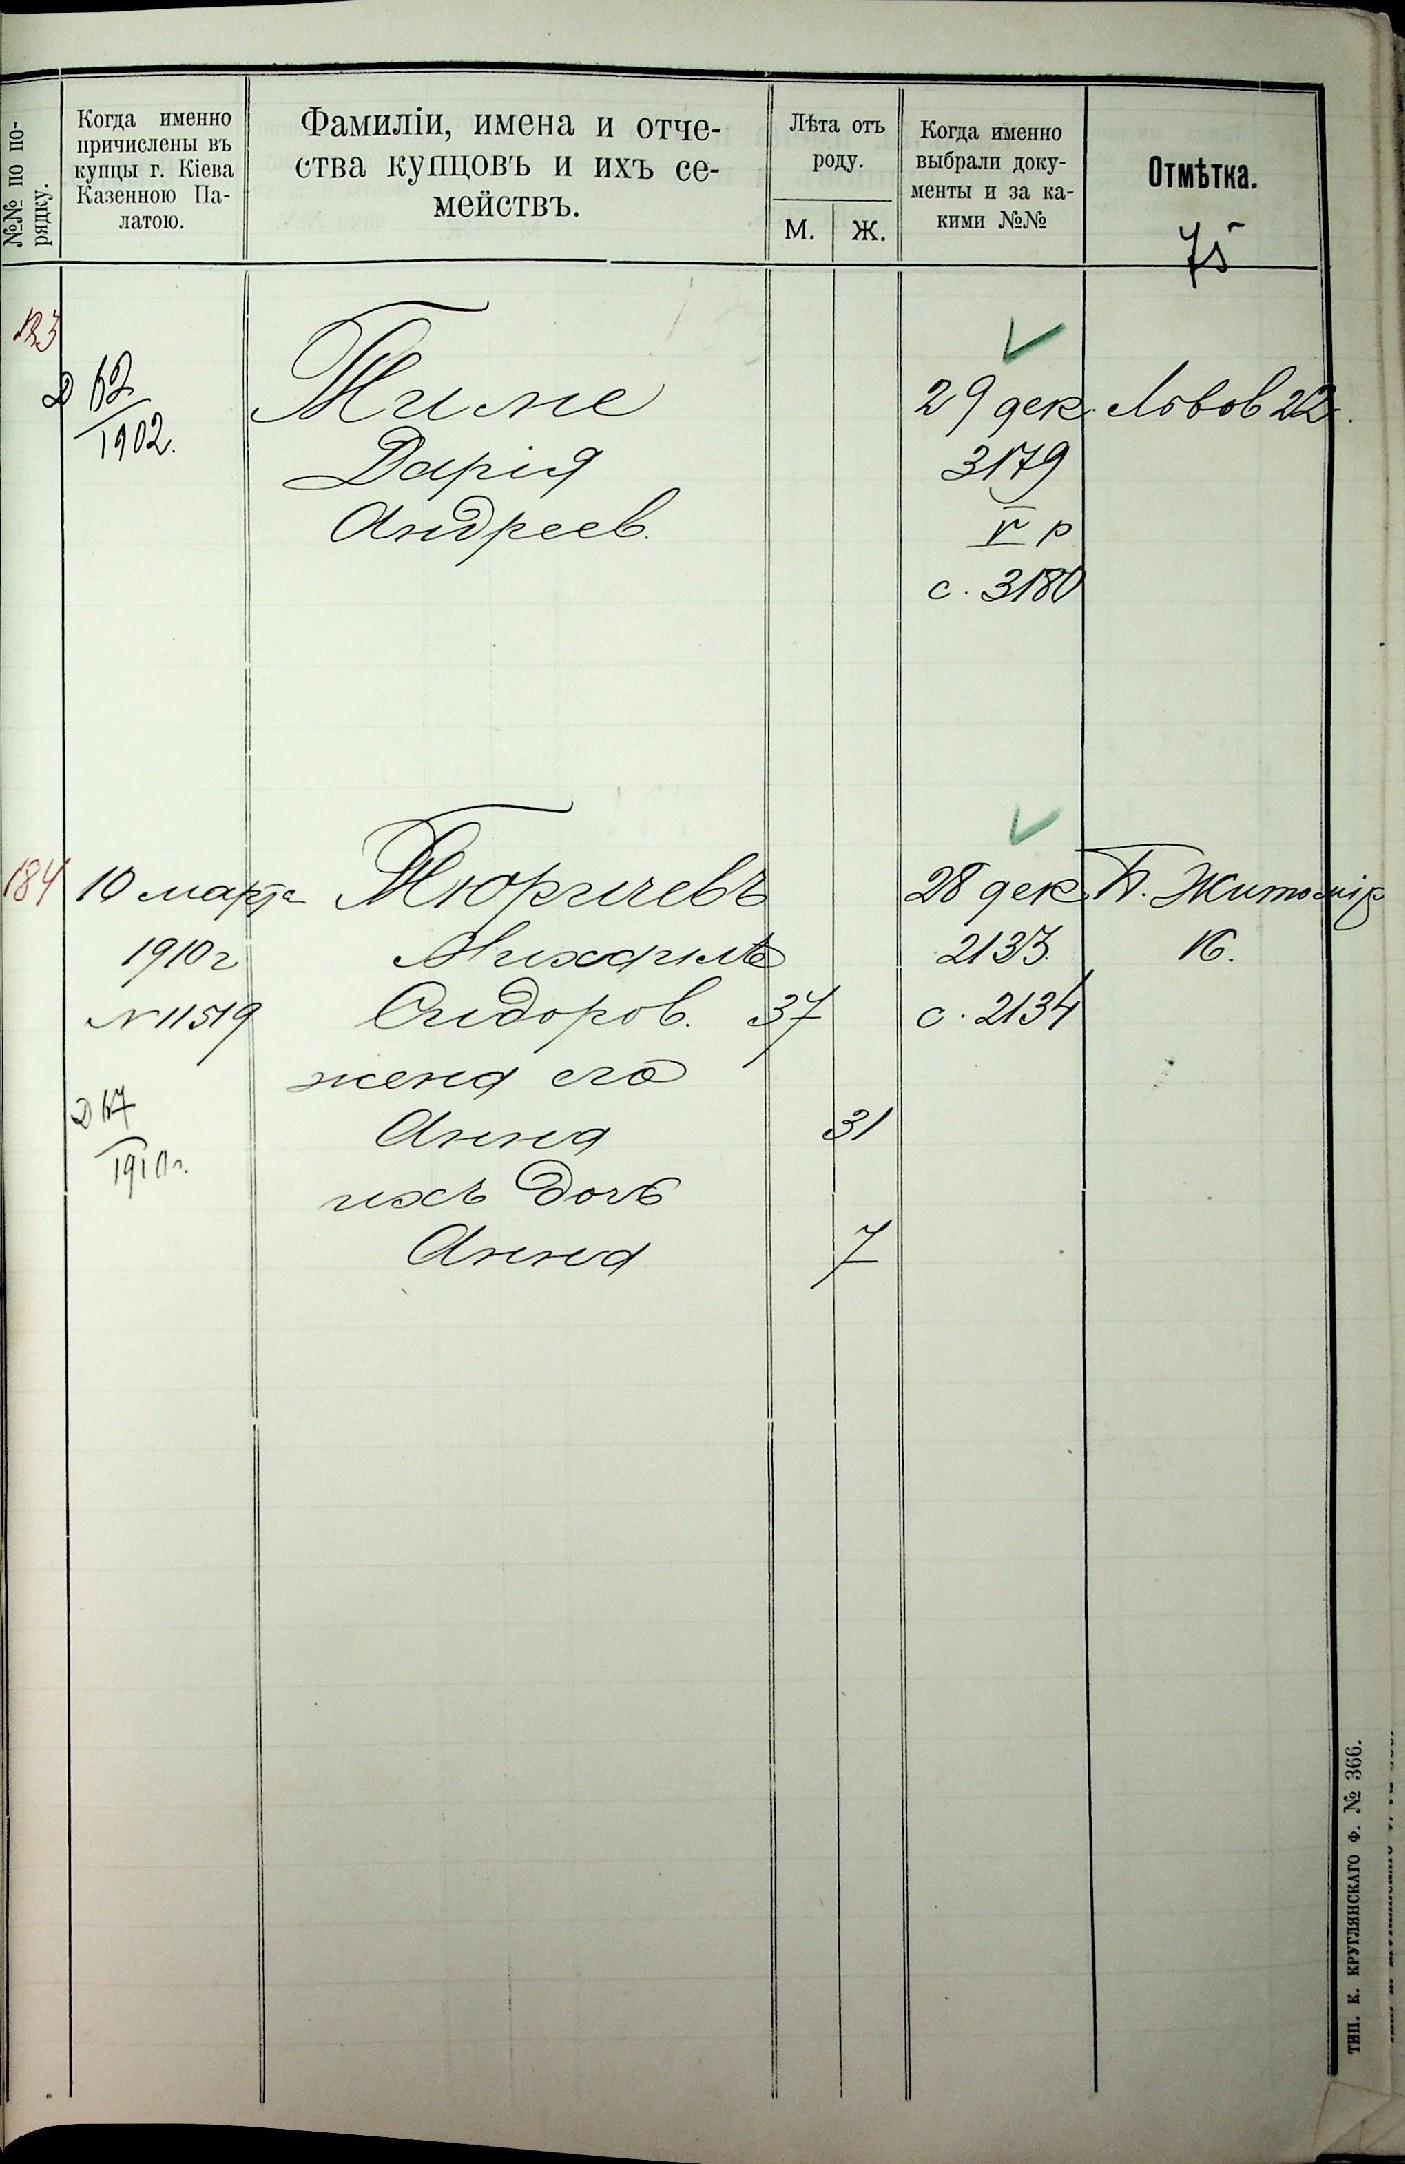 №№ по по-
рядку.
Когда именно
причислены въ
купцы г. Кіева
Казенною Па-
латою.
Фамиліи, имена и отче-
ства купцовъ и ихъ се-
мействъ.
Лѣта отъ
роду.
М. Ж.
Когда именно
выбрали доку-
менты и за ка-
кими №№
Отмѣтка.
75
Д 62
1902.
Тиле
Дарія
Андреев.
29 дек.
3179
V р
с. 3180
Львов 22.
184
10 марта
1910 г
№ 11519
1910 г.
Михаилъ
Сидоров. 37
жена его
Анна 31
ихъ дочь
Анна 7
28 дек.
2133
с. 2134
Б. Житомір
16.
ТИП. К. КРУГЛЯНСКАГО Ф. № 366.